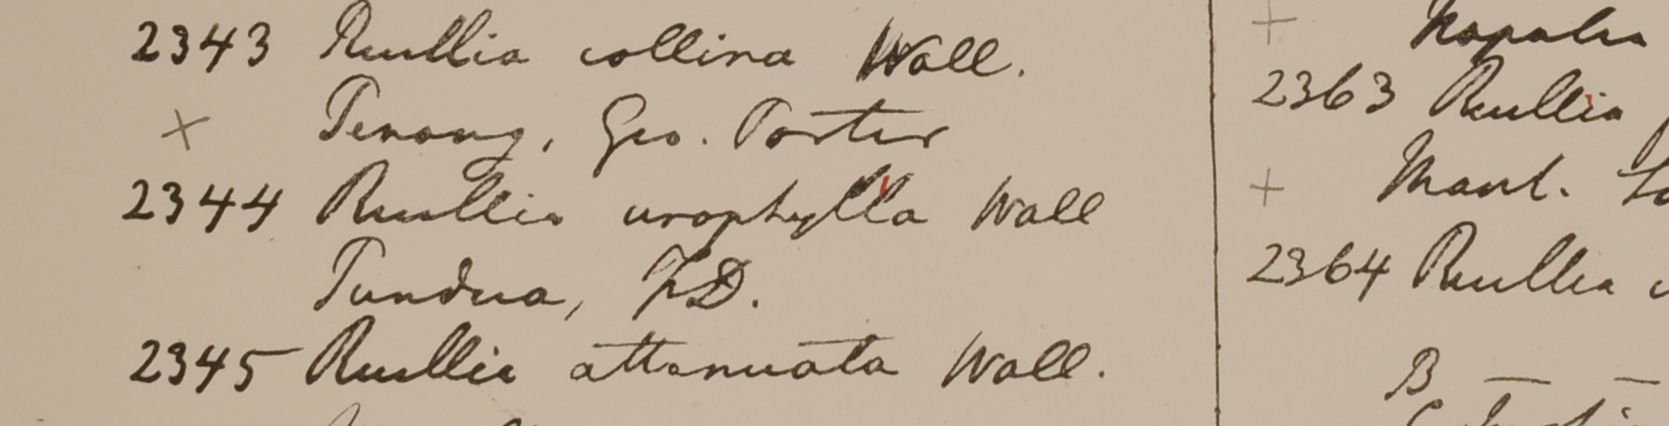 2343 Ruellia collina Wall.
× Penang, Geo. Porter
2344 Ruellia urophylla Wall
Pundua, F.D.
2345 Ruellia attenuata Wall.
+ Napalia
2363 Ruellia
+ Maul.
2364 Ruellia
B — —